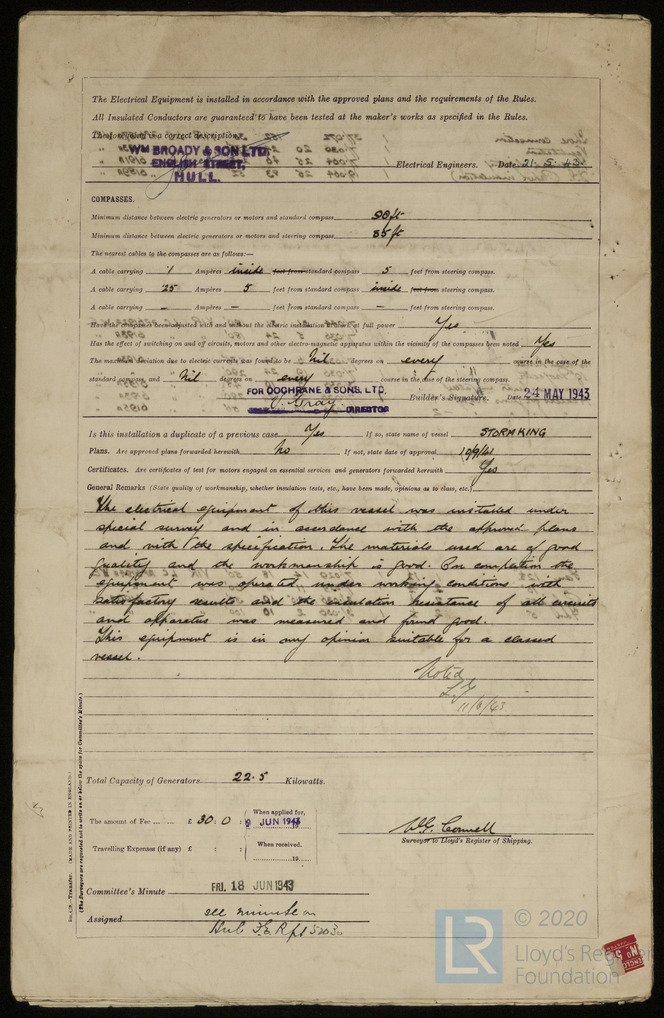 The Electrical Equipment is installed in accordance with the approved plans and the requirements of the Rules.
All Insulated Conductors are guaranteed to have been tested at the maker's works as specified in the Rules.
The foregoing is a correct description.
WM BROADY & SON LTD.
ENGLISH STREET,
HULL.
Electrical Engineers. Date 21.5.43.
COMPASSES.
Minimum distance between electric generators or motors and standard compass 98 ft
Minimum distance between electric generators or motors and steering compass 85 ft
The nearest cables to the compasses are as follows:—
A cable carrying 1 Ampères inside feet from standard compass 5 feet from steering compass.
A cable carrying .25 Ampères 5 feet from standard compass inside feet from steering compass.
A cable carrying – Ampères – feet from standard compass – feet from steering compass.
Have the compasses been adjusted with and without the electric installation at work at full power Yes
Has the effect of switching on and off circuits, motors and other electro-magnetic apparatus within the vicinity of the compasses been noted Yes
The maximum deviation due to electric currents was found to be Nil degrees on every course in the case of the
standard compass, and Nil degrees on every course in the case of the steering compass.
FOR COCHRANE & SONS, LTD.
DIRECTOR
Builder's Signature. Date 24 MAY 1943
Is this installation a duplicate of a previous case Yes If so, state name of vessel STORMKING
Plans. Are approved plans forwarded herewith No If not, state date of approval 10/9/41
Certificates. Are certificates of test for motors engaged on essential services and generators forwarded herewith Yes
General Remarks (State quality of workmanship, whether insulation tests, etc., have been made, opinions as to class, etc.)
The electrical equipment of this vessel was installed under
special survey and in accordance with the approved plans
and with the specification. The materials used are of good
quality and the workmanship is good. On completion the
equipment was operated under working conditions with
satisfactory results and the insulation resistance of all circuits
and apparatus was measured and found good.
This equipment is in my opinion suitable for a classed
vessel.
Noted
11/6/43
Total Capacity of Generators 22.5 Kilowatts.
The amount of Fee ... ... £ 30 : 0 :
When applied for,
9 JUN 1943
Travelling Expenses (if any) £ : :
When received.
19
Surveyor to Lloyd's Register of Shipping.
(MADE AND PRINTED IN ENGLAND.)
(The Surveyors are requested not to write on or below the space for Committee's Minute.)
Committee's Minute FRI. 18 JUN 1943
Assigned see minute on
Hul F.E. Rpt 52030
LR
© 2020
Lloyd's Register
Foundation